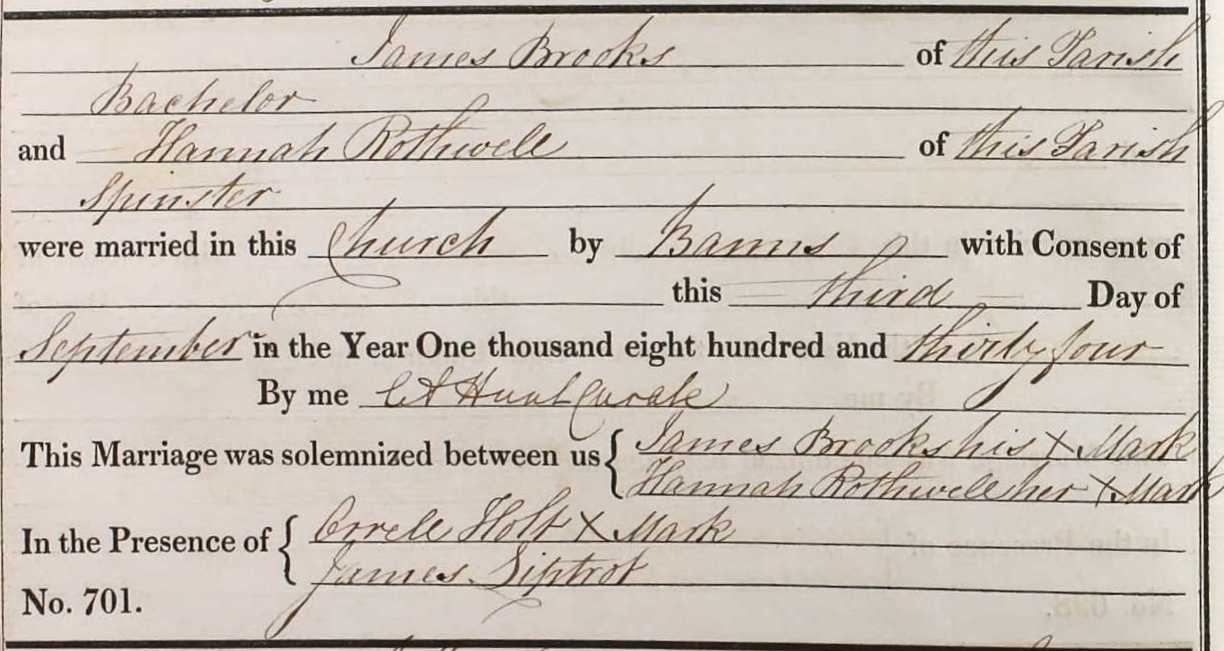 James Brooks of this Parish
Bachelor
and Hannah Rothwell of this Parish
Spinster
were married in this Church by Banns with Consent of
this third Day of
September in the Year One thousand eight hundred and thirty four
By me Hunt Curate
This Marriage was solemnized between us { James Brooks his X Mark
Hannah Rothwell her X Mark
In the Presence of { Orrell Holt X Mark
James Liptrot
No. 701.